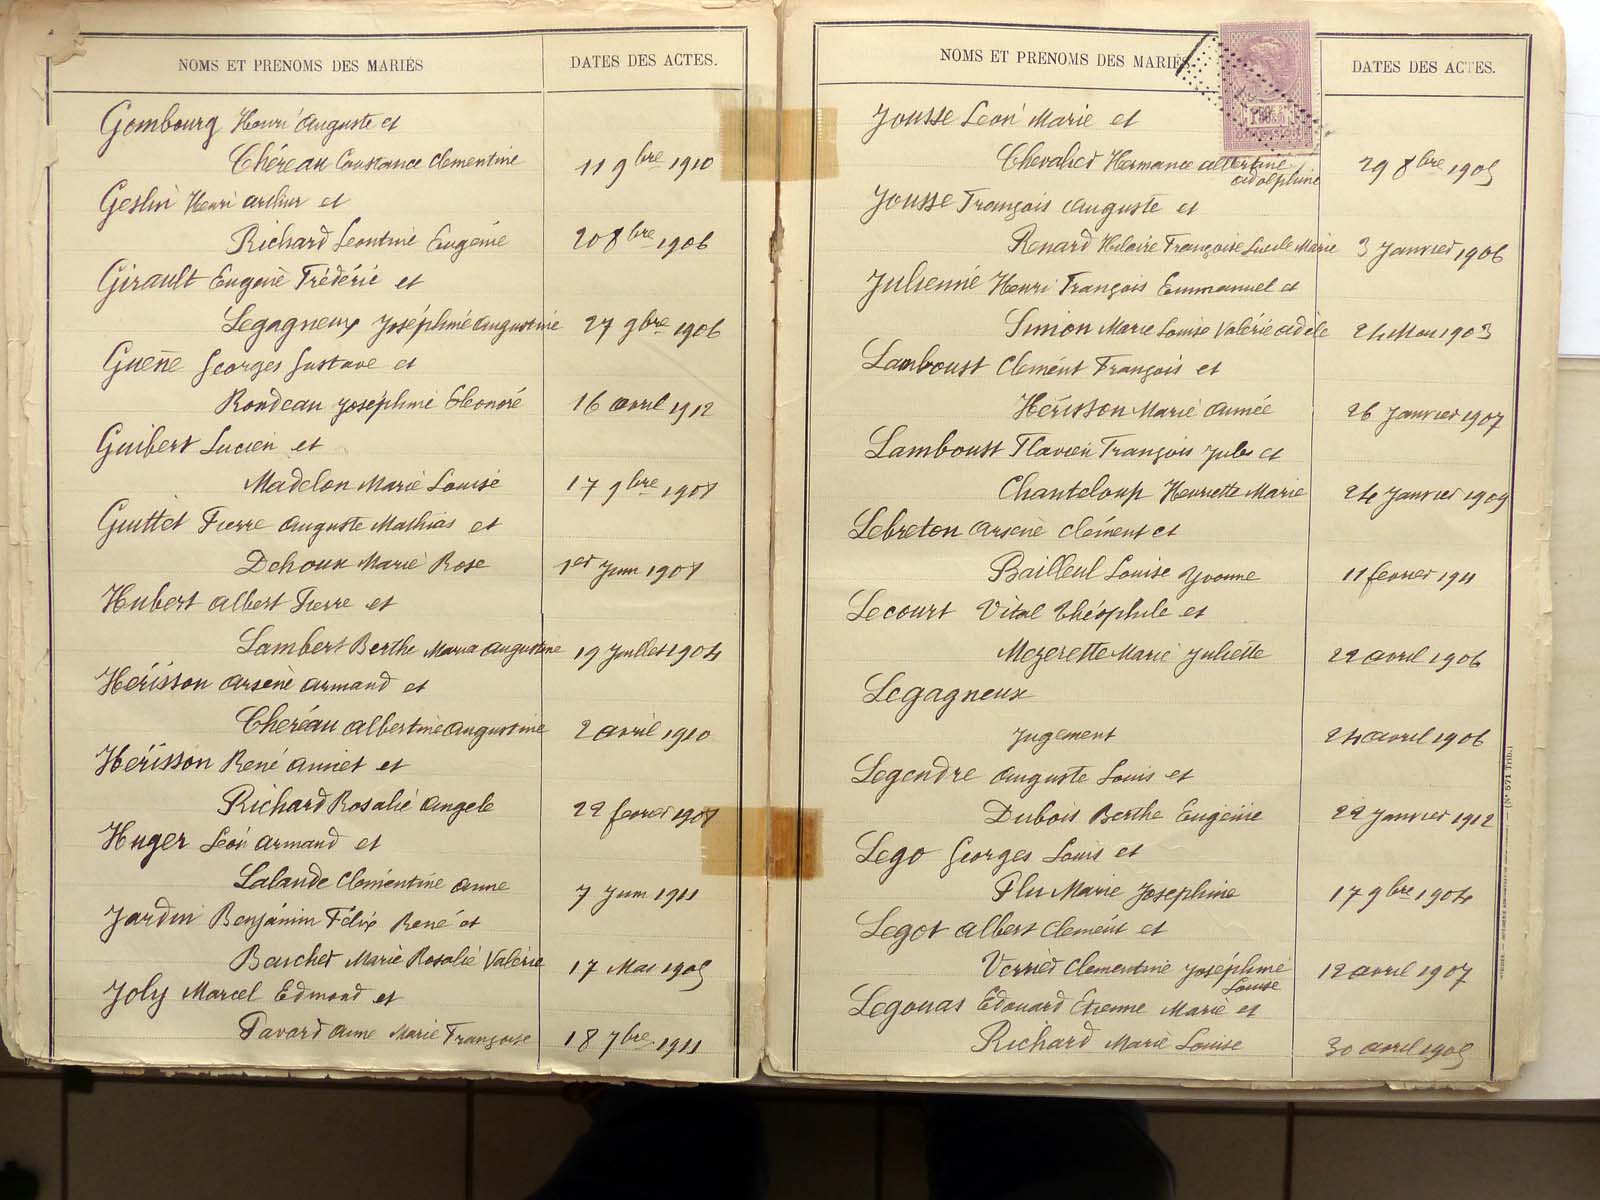 NOMS ET PRENOMS DES MARIÉS DATES DES ACTES.
Gombourg Henri Auguste et
Chéreau Constance Clementine 11 9bre 1910
Geslin Henri Arthur et
Richard Leontine Eugénie 20 8bre 1906
Girault Eugène Frédéric et
Legagneux Joséphine Augustine 27 9bre 1906
Guenne Georges Gustave et
Rondeau Joséphine Eléonore 16 avril 1912
Guibert Lucien et
Madelon Marie Louise 17 9bre 1908
Guittet Pierre Auguste Mathias et
Dehoux Marie Rose 1er Juin 1908
Hubert Albert Pierre et
Lambert Berthe Maria Augustine 19 Juillet 1904
Hérisson Arsène Armand et
Chéreau Albertine Augustine 2 avril 1910
Hérisson René Aimet et
Richard Rosalie Angele 22 fevrier 1908
Huger Léon Armand et
Lalande Clémentine Anne 7 Juin 1911
Jardin Benjamin Félix René et
Boucher Marie Rosalie Valérie 17 Mai 1905
Joly Marcel Edmond et
Pavard Anne Marie Françoise 18 7bre 1911
NOMS ET PRENOMS DES MARIÉS DATES DES ACTES.
Jousse Léon Marie et
Chevalier Hermance Albertine
Adolphine 29 8bre 1905
Jousse François Auguste et
Renard Hilaire Françoise Lucile Marie 3 Janvier 1906
Julienne Henri François Emmanuel et
Simon Marie Louise Valérie Adèle 24 Mai 1903
Lamboust Clément François et
Hérisson Marie Aimée 26 Janvier 1907
Lamboust Flavien François Jules et
Chanteloup Henriette Marie 24 Janvier 1909
Lebreton Arsène Clément et
Bailleul Louise Yvonne 11 fevrier 1911
Lecourt Vital Théophile et
Mezerette Marie Juliette 22 avril 1906
Legagneux
Jugement 24 avril 1906
Legendre Auguste Louis et
Dubois Berthe Eugénie 22 Janvier 1912
Lego Georges Louis et
Plu Marie Joséphine 17 9bre 1904
Legot Albert Clément et
Verrier Clementine Joséphine
Louise 12 avril 1907
Legouas Edouard Etienne Marie et
Richard Marie Louise 30 avril 1905
(N° 571 Trib.)